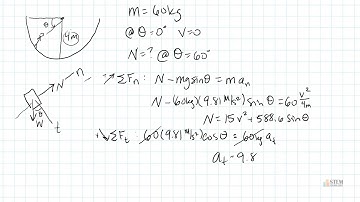 m = 60kg
@ θ = 0° V = 0
N = ? @ θ = 60°
θ
4m
N n
θ
W
t
ΣFn : N - mg sinθ = m an
N - 60kg (9.81 m/s²) sinθ = 60 v²/4m
N = 15v² + 588.6 sinθ
ΣFt : 60(9.81 m/s²) cosθ = 60kg at
at = 9.8
STEM